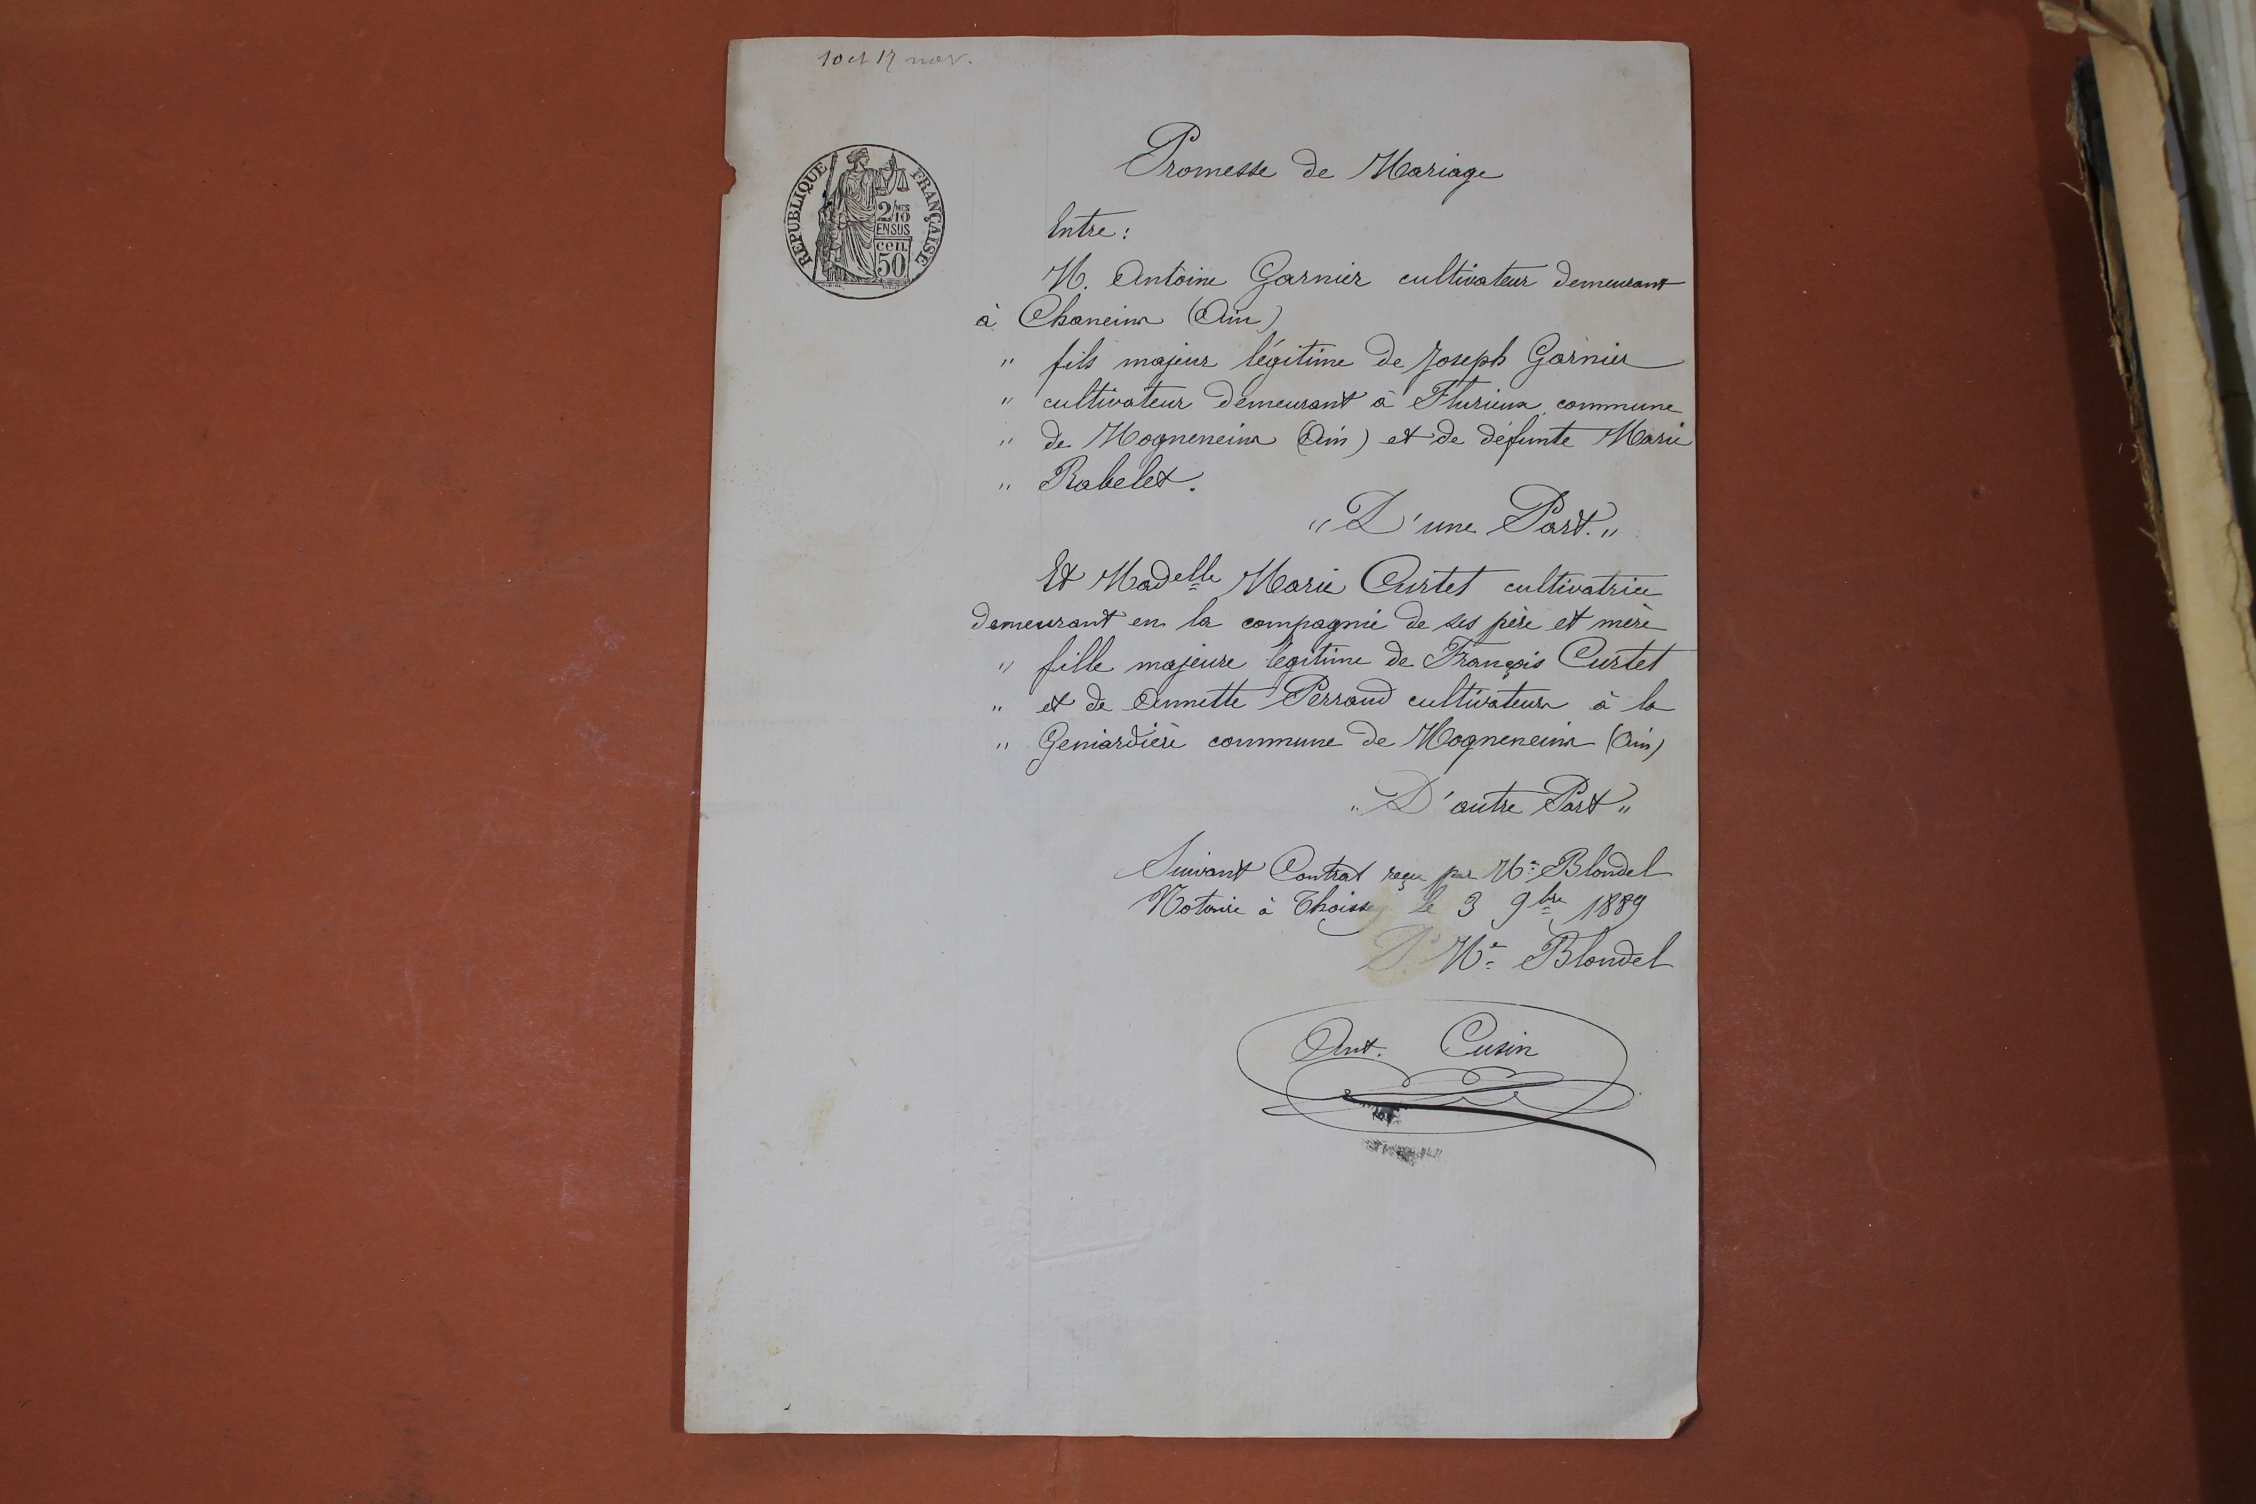 10 et 17 nov.
RÉPUBLIQUE FRANÇAISE
2/10 MES
EN SUS
50 cen.
Promesse de Mariage
Entre :
M. Antoine Garnier cultivateur demeurant
à Chaneins (Ain)
" fils majeur légitime de Joseph Garnier
" cultivateur demeurant à Flurieux commune
" de Mogneneins (Ain) et de défunte Marie
" Rabelet.
" D'une Part. "
Et Madelle Marie Curtet cultivatrice
demeurant en la compagnie de ses père et mère
" fille majeure légitime de François Curtet
" et de Annette Perraud cultivateurs à la
" Geniardière commune de Mogneneins (Ain)
" D'autre Part "
Suivant Contrat reçu par Me Blondel
Notaire à Thoissey le 3 9bre 1889
Pr Me Blondel
Ant. Cusin